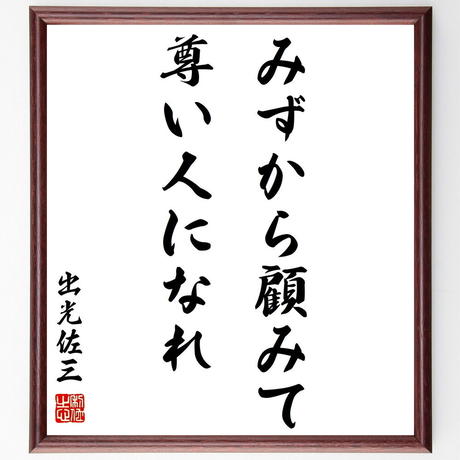 みずから顧みて
尊い人になれ
出光佐三